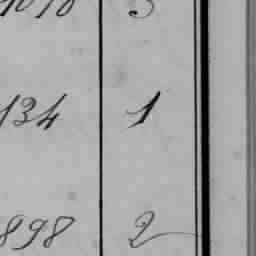 134 1
898 2